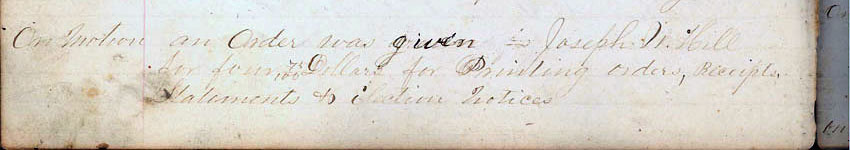 On Motion an Order was given to Joseph W. Hill
for four 75/100 Dollars for Printing orders, Receipts
Statements & election Notices